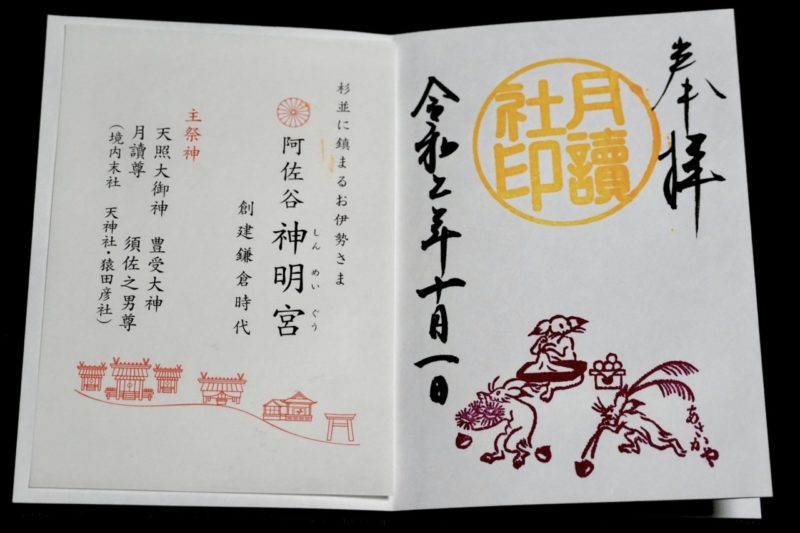 奉拝
月讀
社印
令和二年十月一日
あさがや
杉並に鎮まるお伊勢さま
阿佐谷 神明宮
しんめいぐう
創建鎌倉時代
主祭神
天照大御神 豊受大神
月讀尊 須佐之男尊
（境内末社 天神社・猿田彦社）